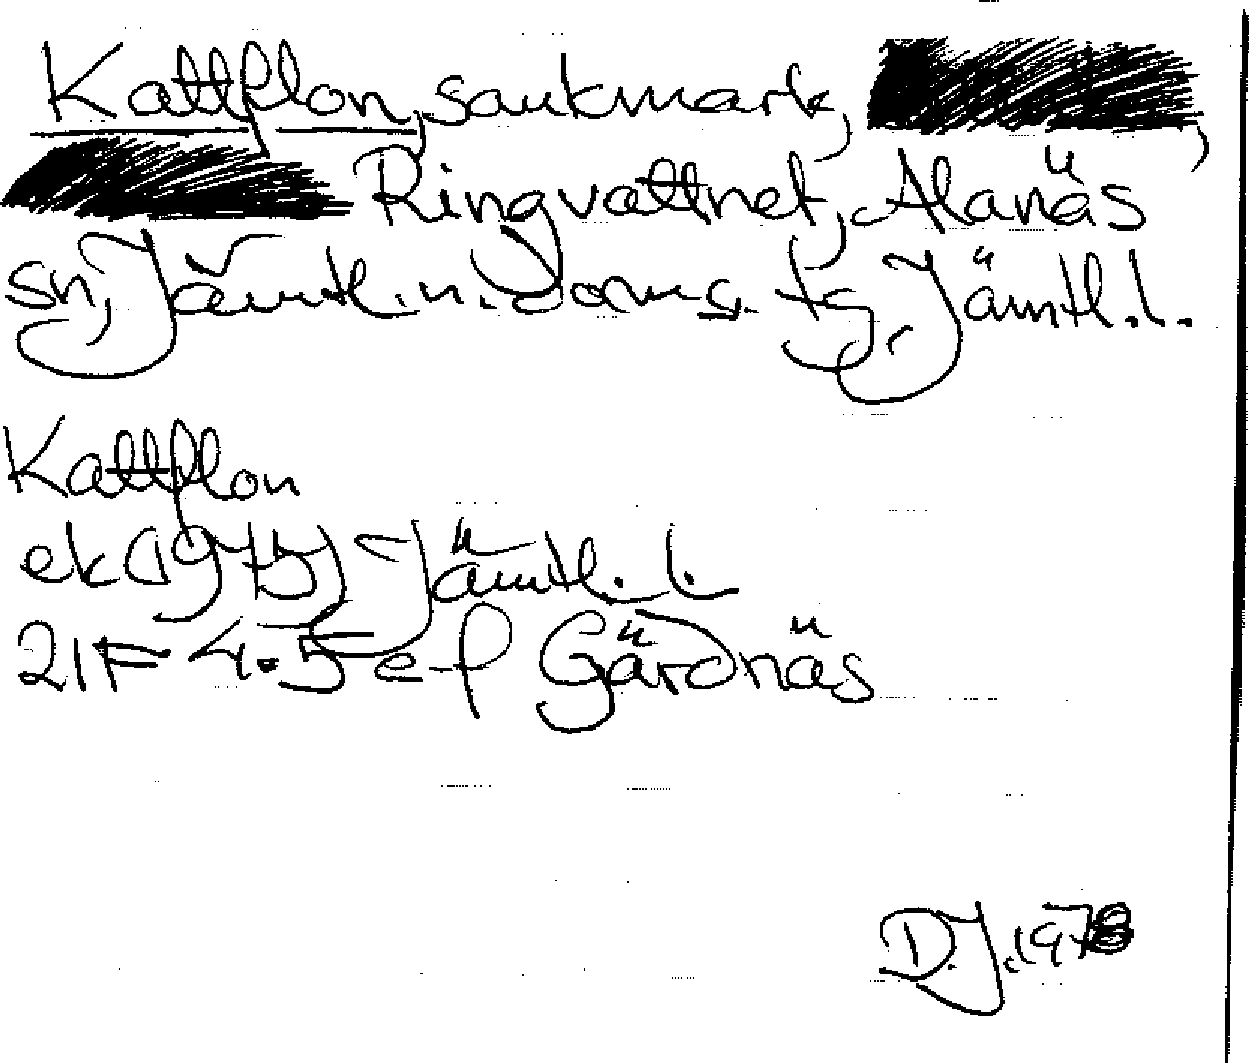 Kattflon, sankmark,
Ringvattnet, Alanäs
sn, Jämtl. n. doms. tg, Jämtl. l.
Kattflon
ek (1975) Jämtl. l.
21F 4-5 e-f Gärdnäs
D.J. 1978